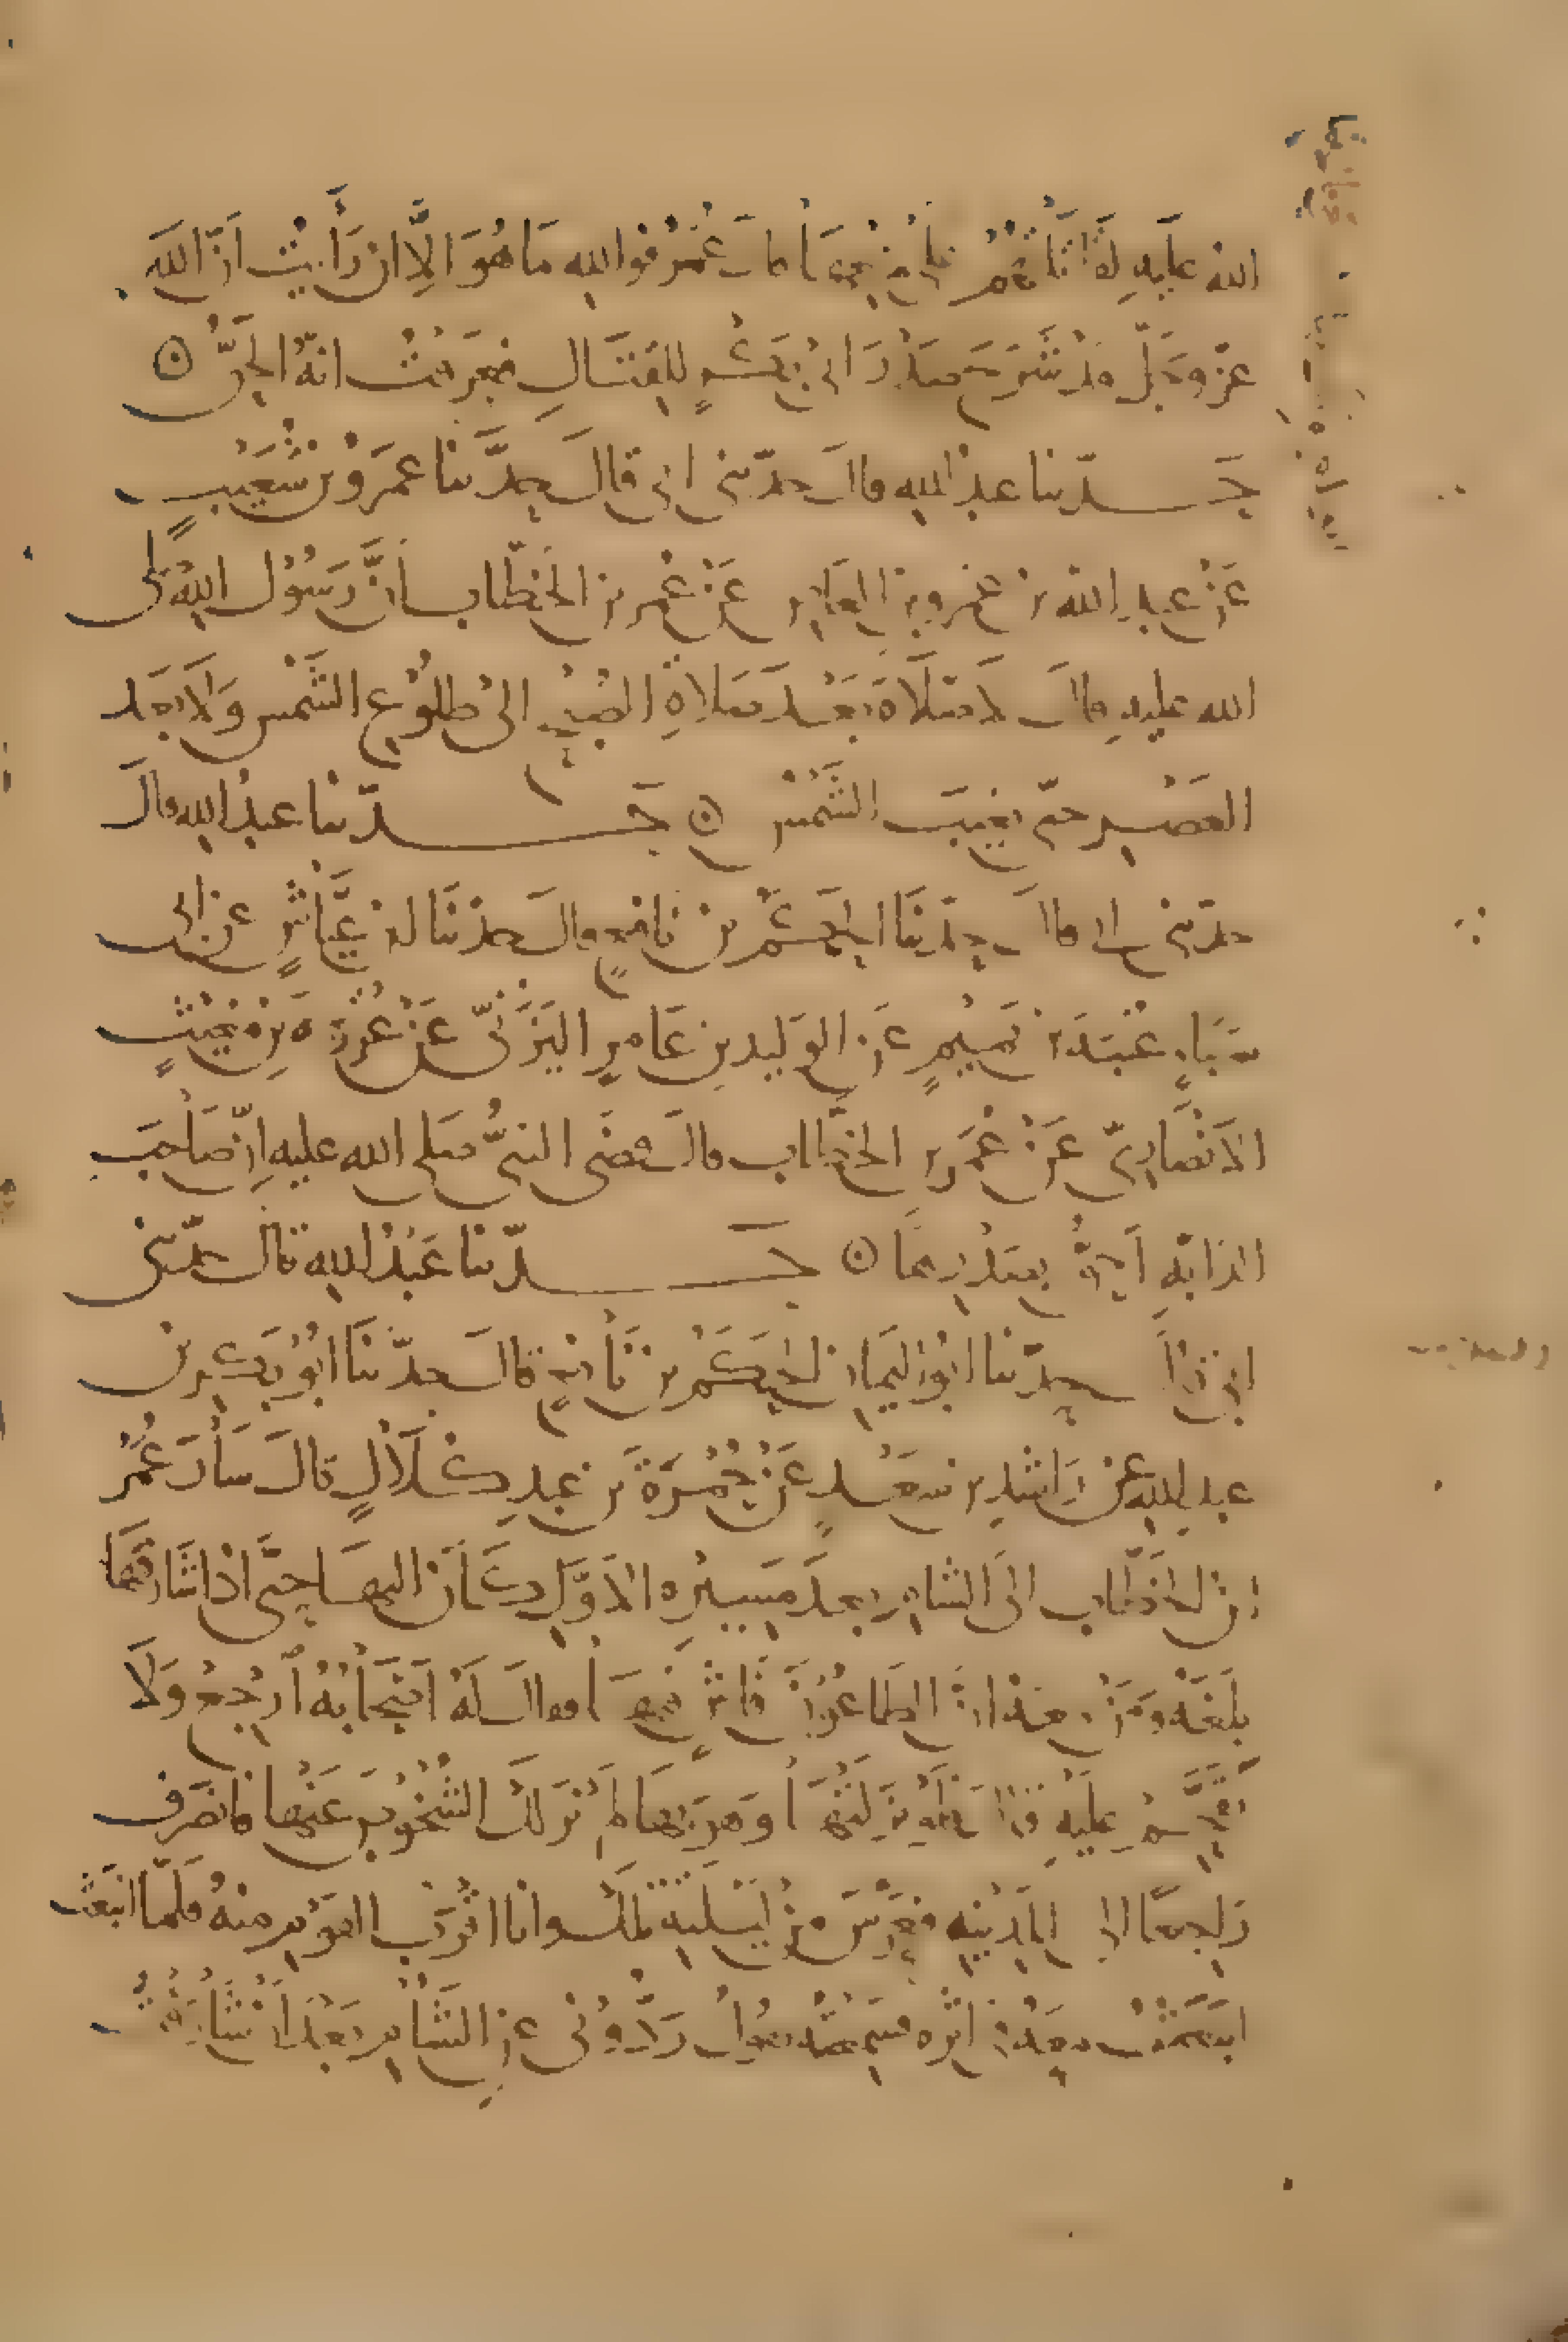 الله عليه لقاتلتهم على منعها قال عمر فوالله ما هو الا ان رأيت ان الله
عز وجل قد شرح صدر ابي بكر للقتال فعرفت انه الحق ⊙
حدثنا عبد الله قال حدثني ابي قال حدثنا عمرو بن شعيب
عن عبد الله بن عمرو بن العاص عن عمر بن الخطاب ان رسول الله صلى
الله عليه قال لا صلاة بعد صلاة الصبح الى طلوع الشمس ولا بعد
العصر حتى تغيب الشمس ⊙ حدثنا عبد الله قال
حدثني ابي قال حدثنا الحكم بن نافع قال حدثنا ابن عياش عن ابي
سبإ عتبة بن تميم عن الوليد بن عامر اليزني عن عروة بن مغيث
الانصاري عن عمر بن الخطاب قال قضى النبي صلى الله عليه ان صاحب
الدابة احق بصدرها ⊙ حدثنا عبد الله قال حدثني
ابي قال حدثنا ابو اليمان الحكم بن نافع قال حدثنا ابو بكر بن
عبد الله عن راشد بن سعد عن حمرة بن عبد كلال قال سار عمر
ابن الخطاب الى الشام بعد مسيره الاول كان اليها حتى اذا شارفها
بلغه ومن معه ان الطاعون فاش فيها فقال له اصحابه ارجع ولا
تقحم عليه فلو نزلتها وهو بها لم نر لك الشخوص عنها فانصرف
راجعا الى المدينه فعرس من ليلته تلك وانا اقرب القوم منه فلما انبعث
انبعثت معه في اثره فسمعته يقول ردوني عن الشام بعد ان شارفت